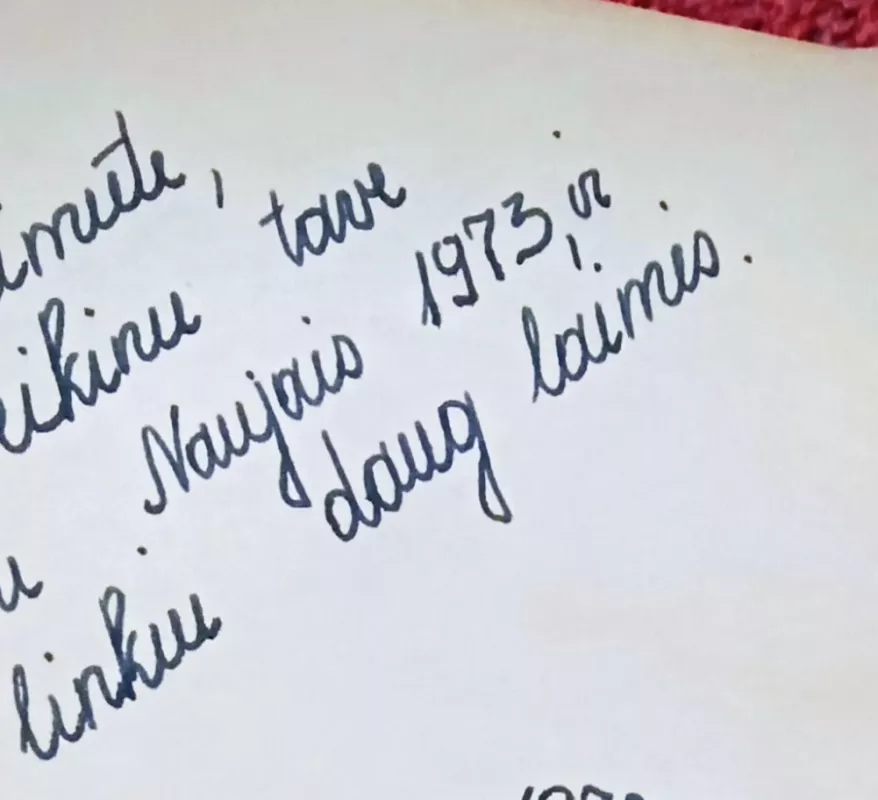 imute,
eikinu tave
u Naujais 1973, ir
linkiu daug laimės.